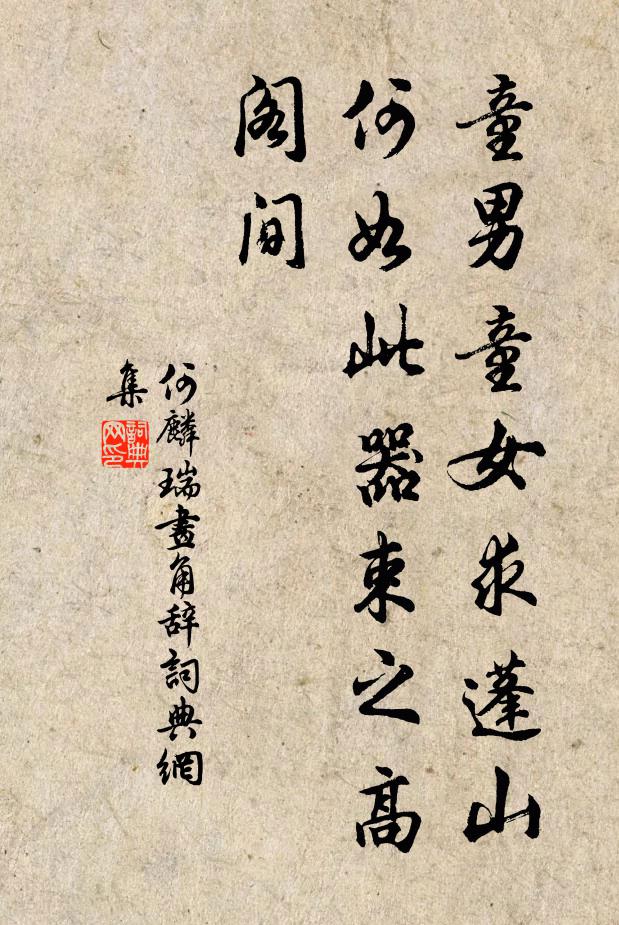 童男童女求蓬山
何如此器束之高
阁间
何麟瑞畫角辞詞典網
集
詞典
网印